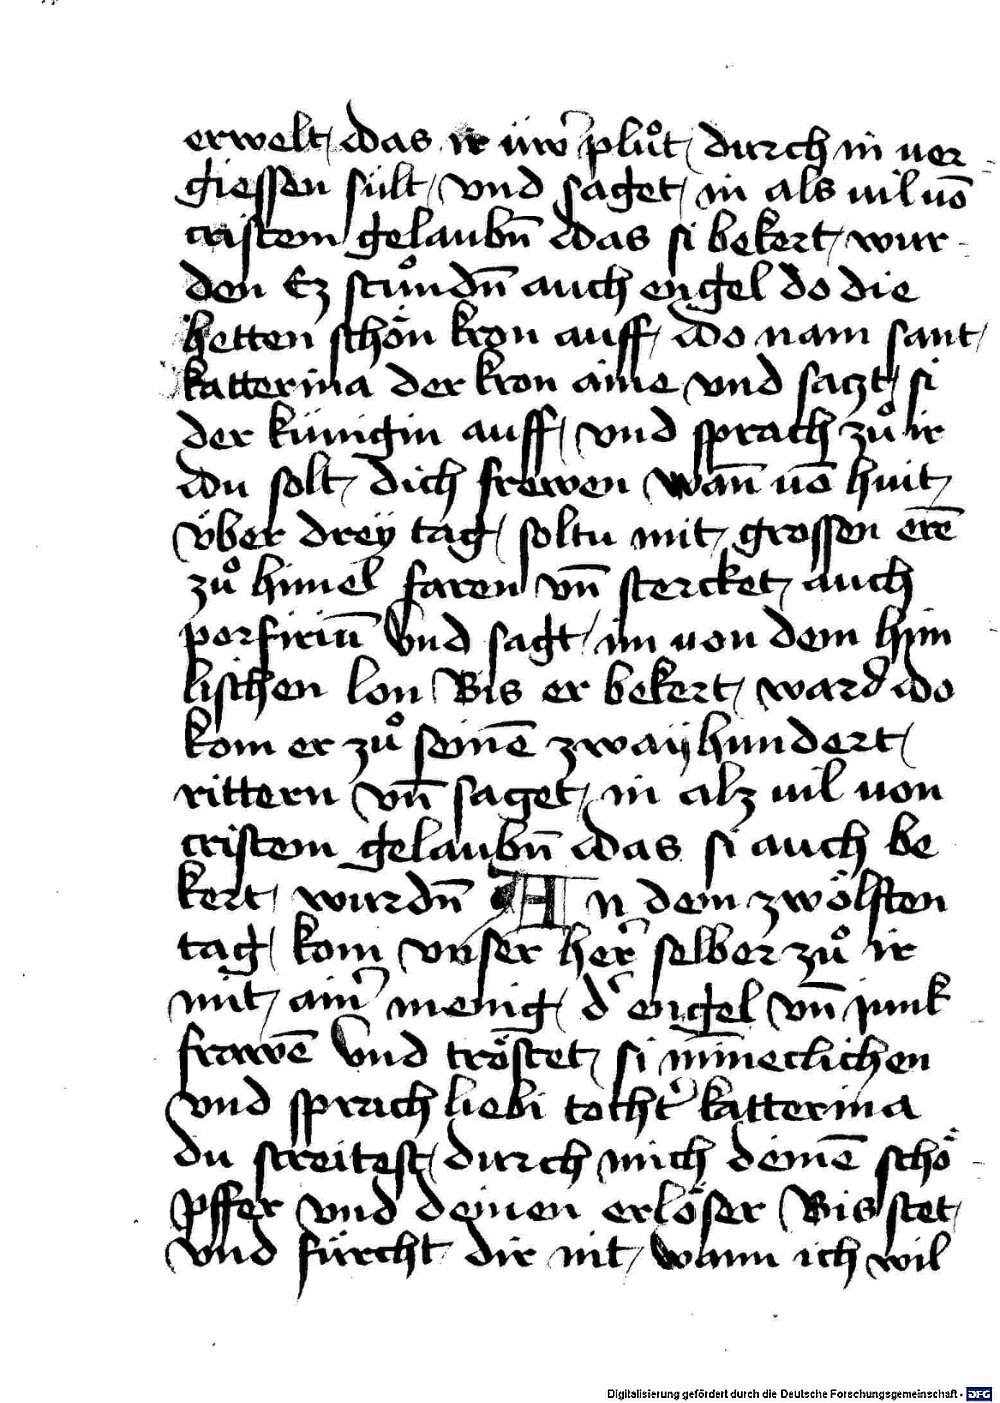 erwelt das ir üwʼ plůt durch in ver
giessen sült vnd saget in als vil uō
cristem gelaubn̄ das si bekert wur-
den Ez stůndn̄ auch engel do die
hetten schön kron auff do nam sant
katterina der kron aine vnd saczt si
der künigin auff vnd sprach zů ir
du solt dich frewen wan̄ uō huit
über dreÿ tag soltu mit grossen erē
zů himel faren vn̄ stercket auch
porfiriū Vnd sagt im von dem him
lischen lon Bis er bekert ward do
kom er zů seinē zwaÿhundert
rittern vn̄ saget in alz vil von
cristem gelaubn̄ das si auch be
kert wurdn̄ An dem zwölften
tag kom vnser herʼ selber zů ir
mit ainʼ menig dʼ engel vn̄ junk
frawē Vnd tröstet si min̄eclichen
vnd sprach liebi tochtʼ katterina
du streitest durch mich deinē schö-
pffer vnd deinen erlöser Bis stet
vnd fürcht dir nit wann ich wil
Digitalisierung gefördert durch die Deutsche Forschungsgemeinschaft - DFG